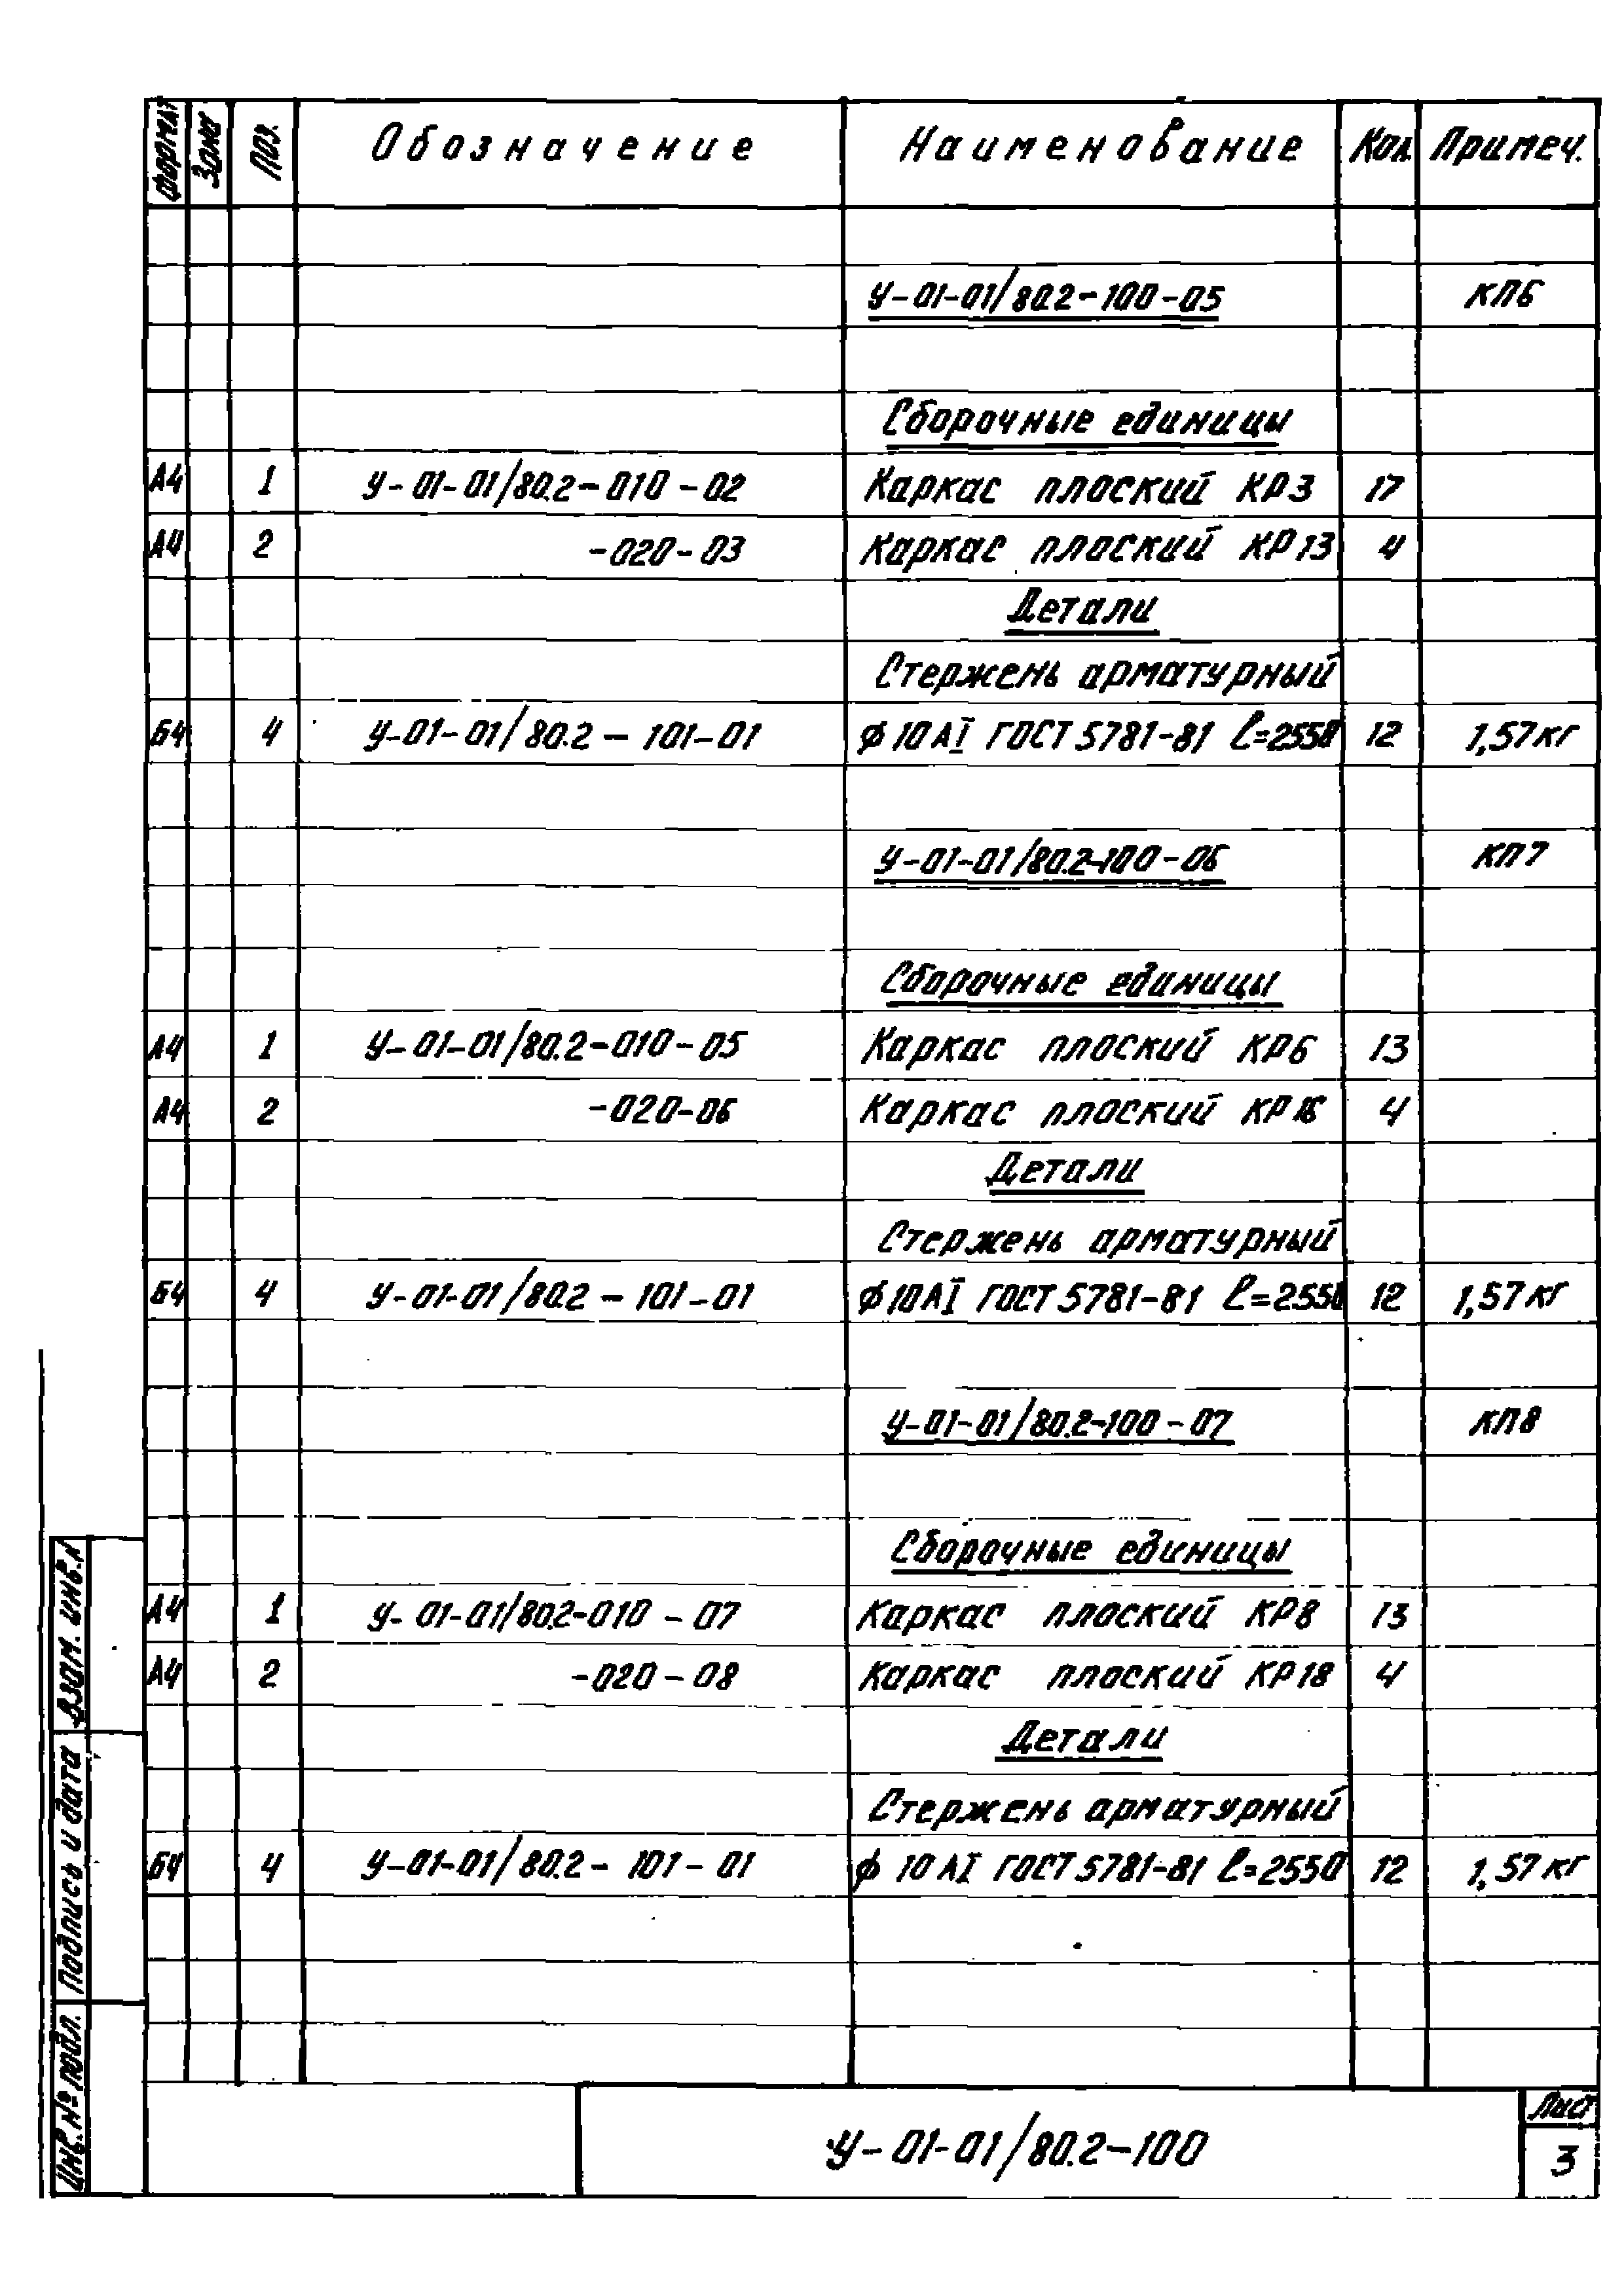 Формат Зона Поз. Обозначение Наименование Кол. Примеч.
У-01-01/80.2-100-05 КП6
Сборочные единицы
А4 1 У-01-01/80.2-010-02 Каркас плоский КР3 17
А4 2 -020-03 Каркас плоский КР13 4
Детали
Стержень арматурный
Б4 4 У-01-01/80.2-101-01 ф10АI ГОСТ 5781-81 ℓ=2550 12 1,57кг
У-01-01/80.2-100-06 КП7
Сборочные единицы
А4 1 У-01-01/80.2-010-05 Каркас плоский КР6 13
А4 2 -020-06 Каркас плоский КР16 4
Детали
Стержень арматурный
Б4 4 У-01-01/80.2-101-01 ф10АI ГОСТ 5781-81 ℓ=2550 12 1,57кг
У-01-01/80.2-100-07 КП8
Сборочные единицы
А4 1 У-01-01/80.2-010-07 Каркас плоский КР8 13
А4 2 -020-08 Каркас плоский КР18 4
Детали
Стержень арматурный
Б4 4 У-01-01/80.2-101-01 ф 10АI ГОСТ 5781-81 ℓ=2550 12 1,57кг
Взам. инв.
Подпись и дата
Инв. № подл.
У-01-01/80.2-100
Лист
3